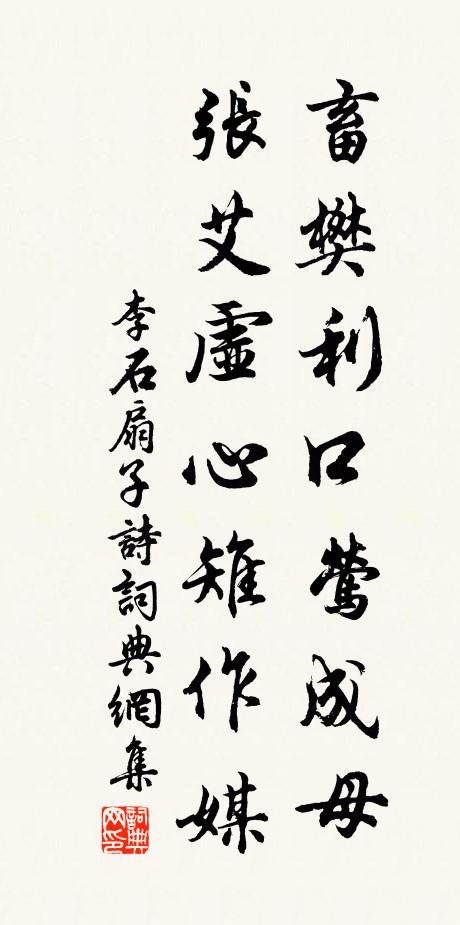 畜樊利口鶯成母
張艾虛心雉作媒
李石扇子詩詞典網集
詞典網印